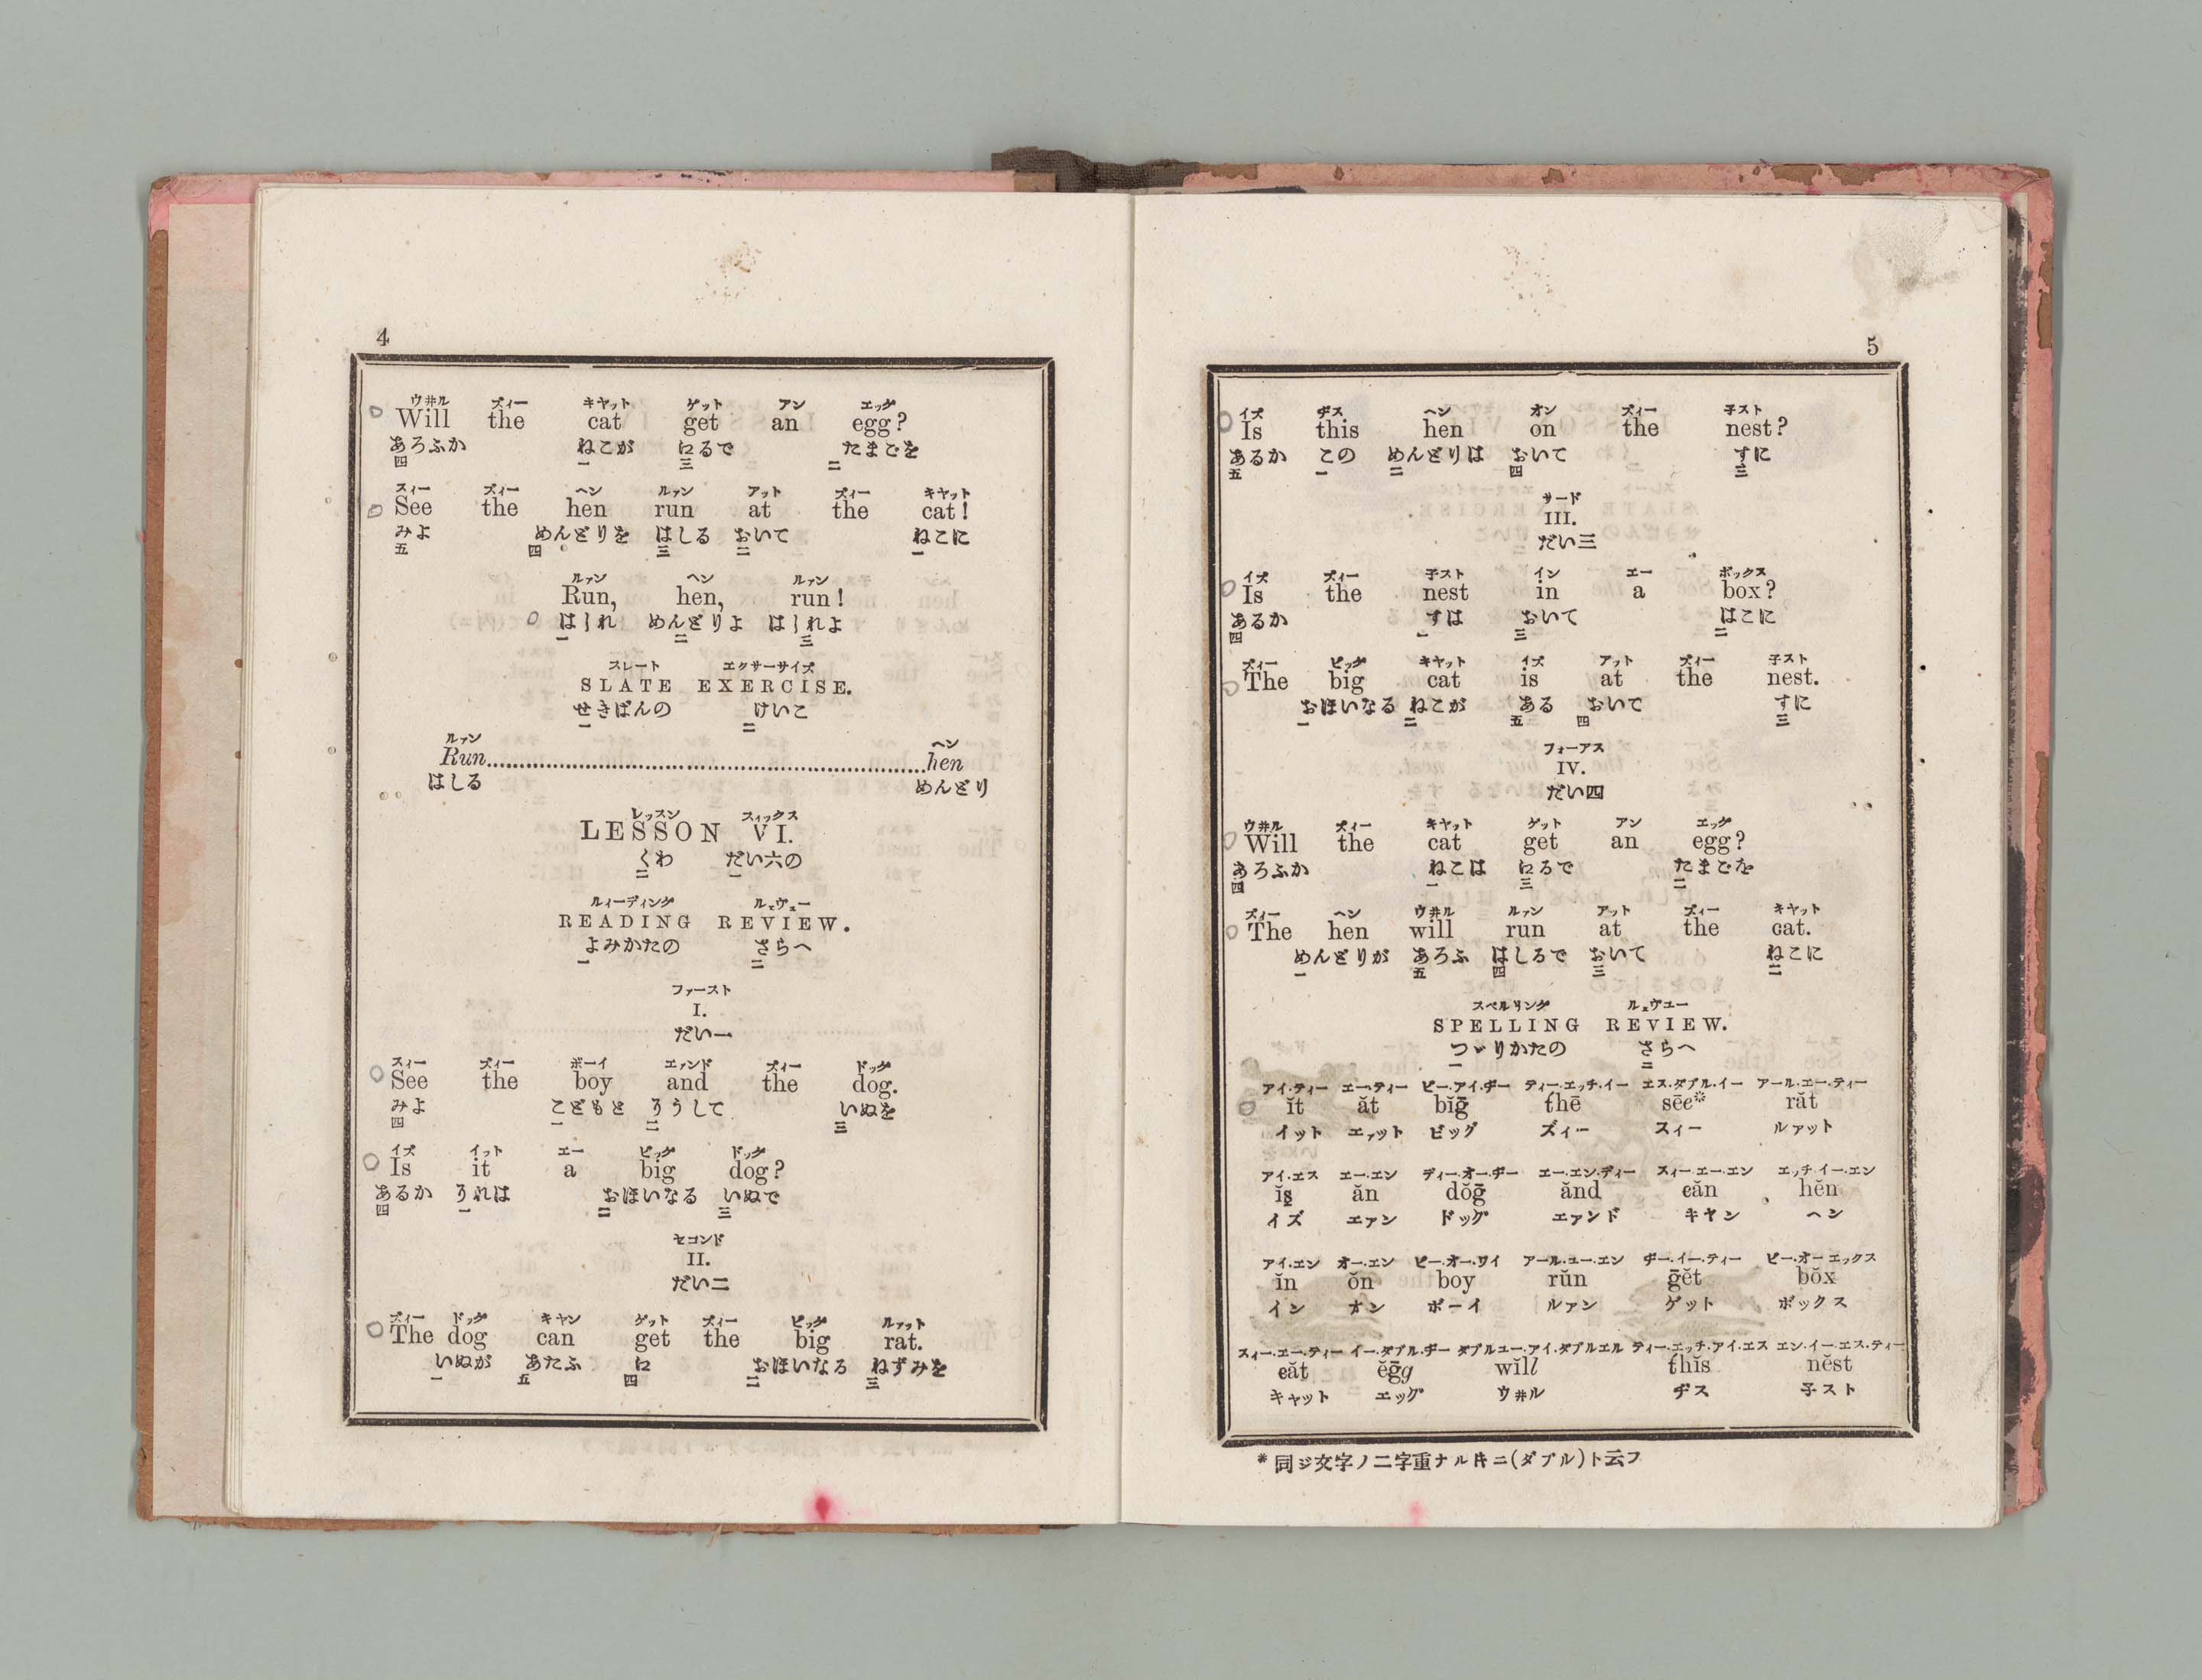 4
ウ井ル ズィー キヤット ゲット アン エッグ
Will the cat get an egg?
あろふか ねこが にるで たまごを
四 一 三 二
スィー ズィー ヘン ルァン アット ズィー キヤット
See the hen run at the cat!
みよ めんどりを はしる おいて ねこに
五 四 三 二 一
ルァン ヘン ルァン
Run, hen, run!
はしれ めんどりよ はしれよ
一 二 三
スレート エクサーサイズ
SLATE EXERCISE.
せきばんの けいこ
一 二
ルァン ヘン
Run hen
はしる めんどり
レッスン スィックス
LESSON VI.
くわ だい六の
二 一
ルィーディング ルェヴュー
READING REVIEW.
よみかたの さらへ
一 二
ファースト
I.
だい一
スィー ズィー ボーイ エァンド ズィー ドッグ
See the boy and the dog.
みよ こどもと そうして いぬを
四 一 二 三
イズ イット エー ビッグ ドッグ
Is it a big dog?
あるか それは おほいなる いぬで
四 一 二 三
セコンド
II.
だい二
ズィー ドッグ キヤン ゲット ズィー ビッグ ルァット
The dog can get the big rat.
いぬが あたふ に おほいなる ねずみを
一 五 四 二 三
5
イズ ヂス ヘン オン ズィー 子スト
Is this hen on the nest?
あるか この めんどりは おいて すに
五 一 二 四 三
サード
III.
だい三
イズ ズィー 子スト イン エー ボックス
Is the nest in a box?
あるか すは おいて はこに
四 一 三 二
ズィー ビッグ キヤット イズ アット ズィー 子スト
The big cat is at the nest.
おほいなる ねこが ある おいて すに
一 二 五 四 三
フォーアス
IV.
だい四
ウ井ル ズィー キヤット ゲット アン エッグ
Will the cat get an egg?
あろふか ねこは にるで たまごを
四 一 三 二
ズィー ヘン ウ井ル ルァン アット ズィー キヤット
The hen will run at the cat.
めんどりが あろふ はしるで おいて ねこに
一 五 四 三 二
スペルリング ルェヴユー
SPELLING REVIEW.
つゞりかたの さらへ
一 二
アイ.ティー エー.ティー ビー.アイ.ヂー ティー.エッチ.イー エス.ダブル.イー アール.エー.ティー
ĭt ăt bĭḡ thē sēe* răt
イット エァット ビッグ ズィー スィー ルァット
アイ.エス エー.エン ディー.オー.ヂー エー.エン.ディー スィー.エー.エン エッチ.イー.エン
ĭs ăn dŏḡ ănd căn hĕn
イズ エァン ドッグ エァンド キヤン ヘン
アイ.エン オー.エン ビー.オー.ワイ アール.ユー.エン ヂー.イー.ティー ビー.オー.エックス
ĭn ŏn boy rŭn ḡĕt bŏx
イン オン ボーイ ルァン ゲット ボックス
スィー.エー.ティー イー.ダブル.ヂー ダブルユー.アイ.ダブルエル ティー.エッチ.アイ.エス エン.イー.エス.ティー
căt ĕḡg wĭll thĭs nĕst
キャット エッグ ウ井ル ヂス 子スト
*同ジ文字ノ二字重ナル𪜈ニ(ダブル)ト云フ